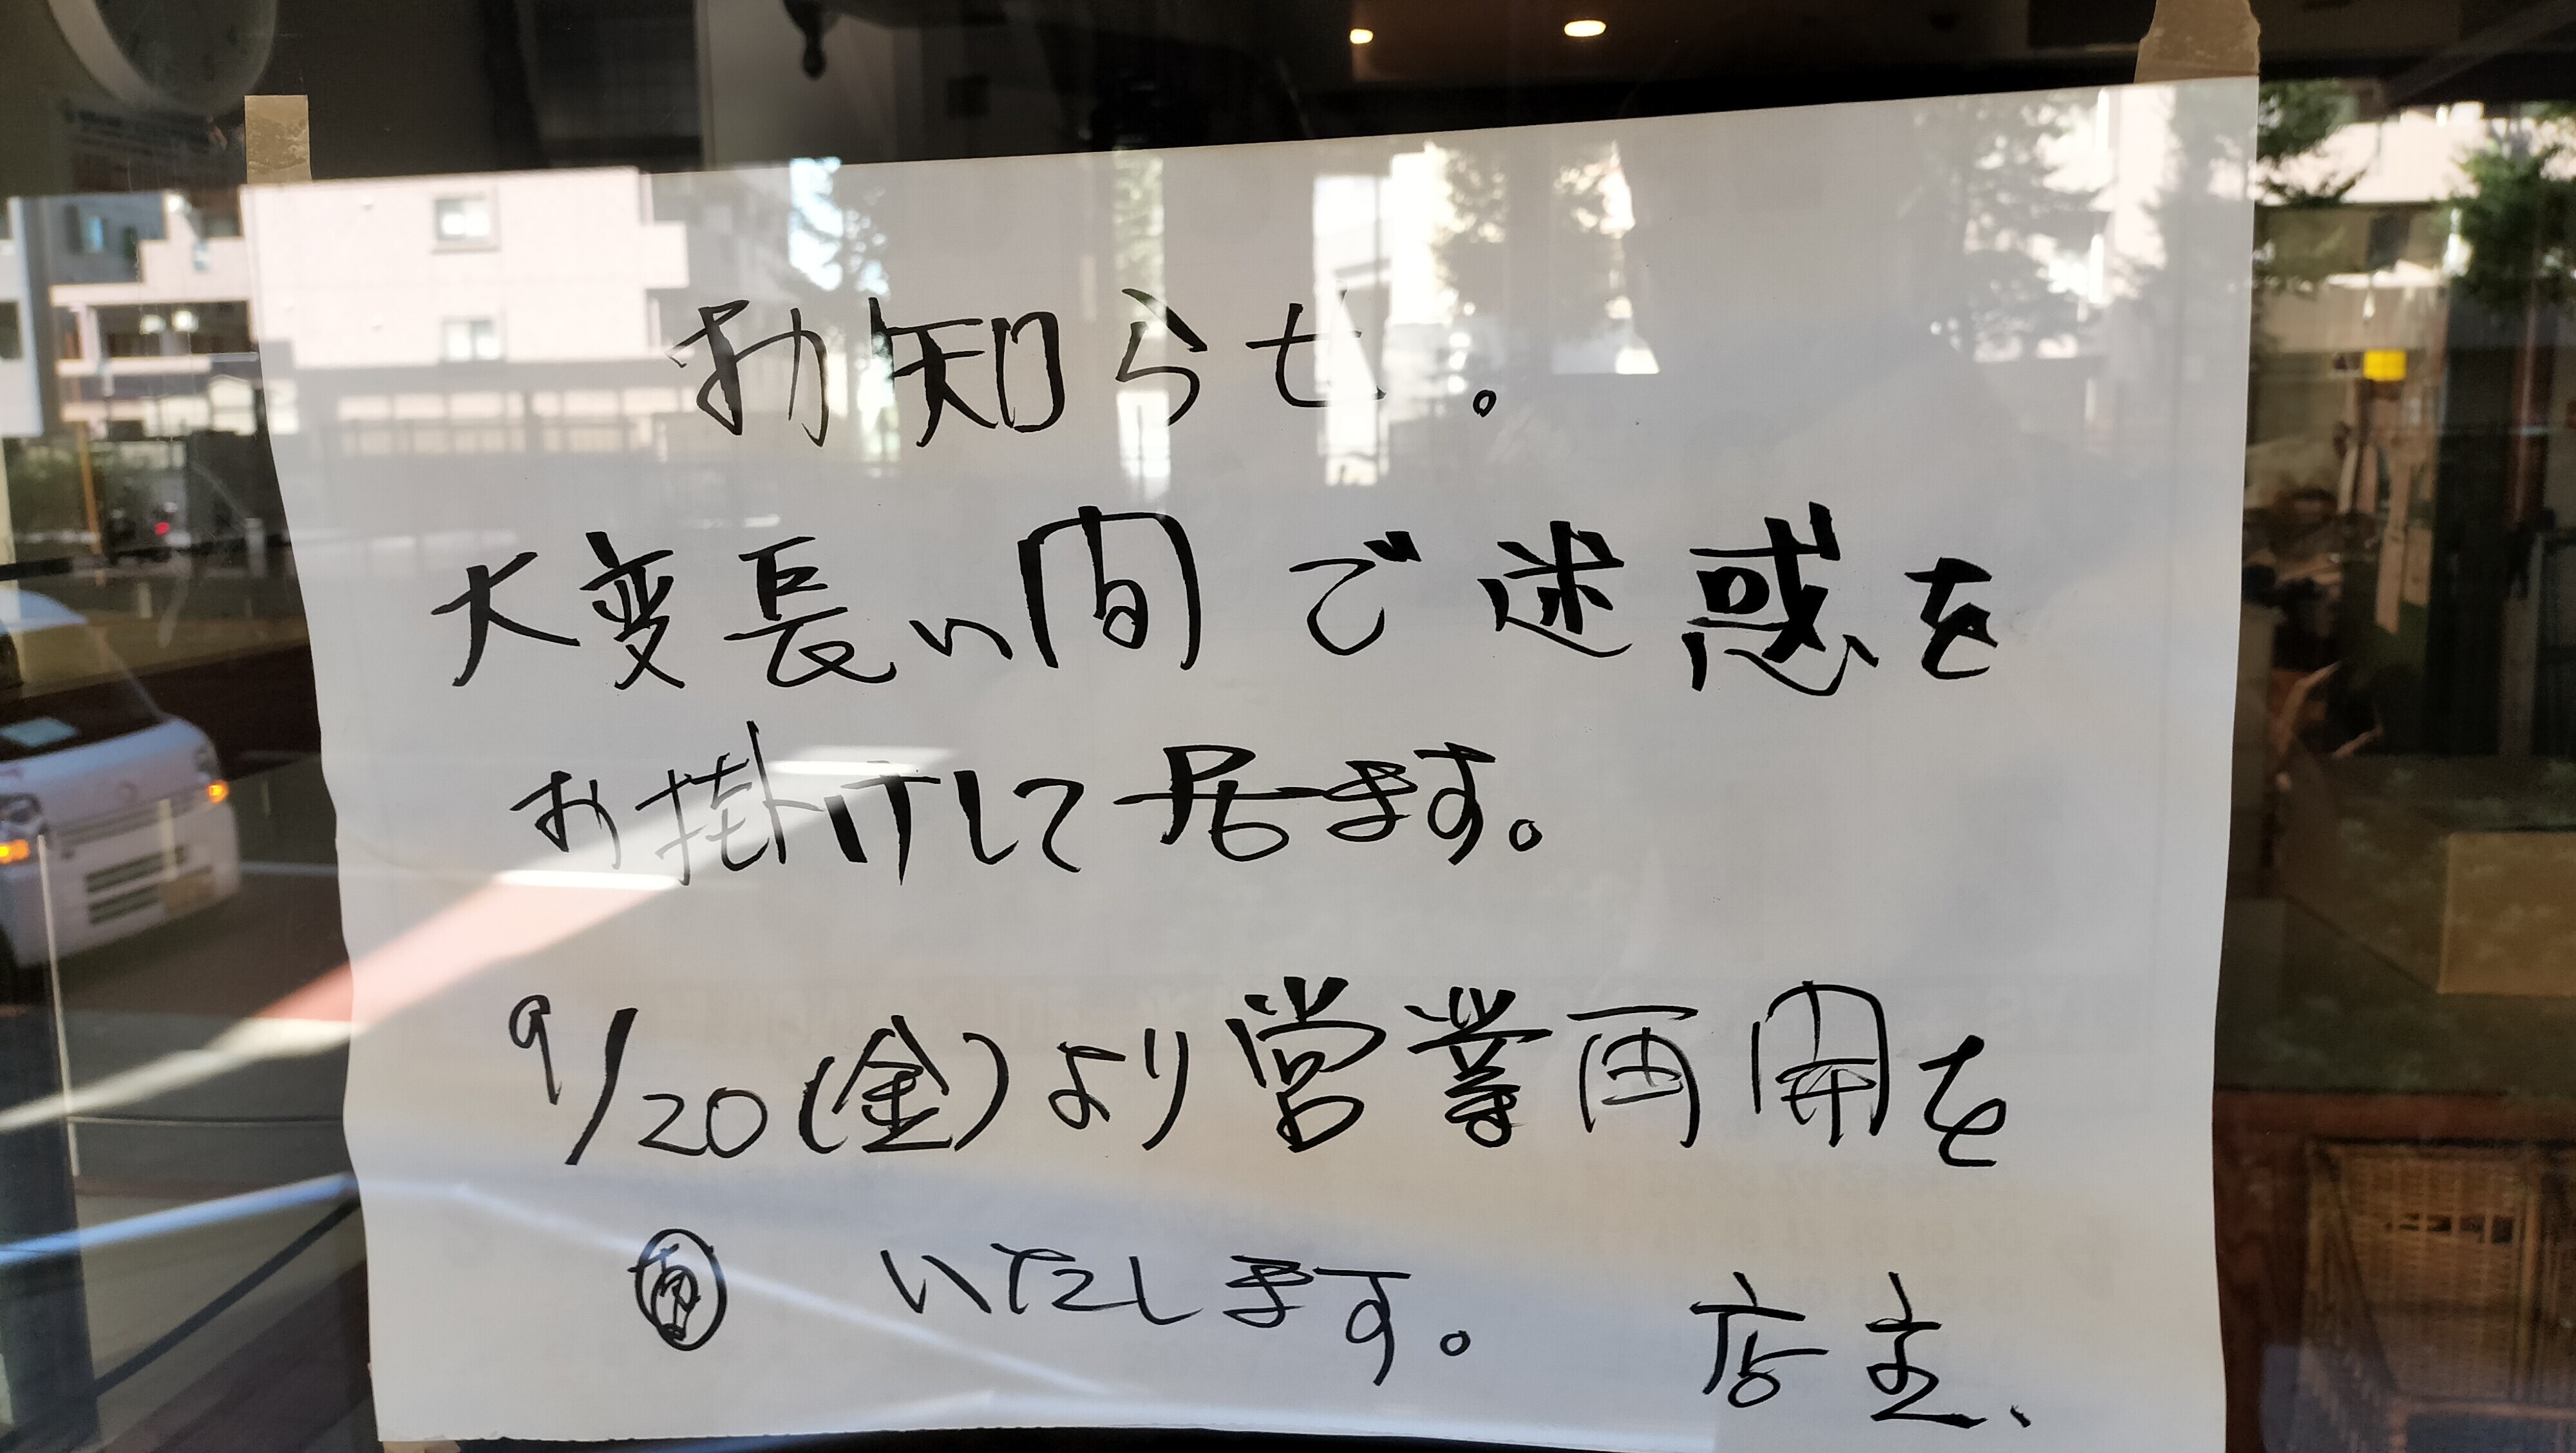 お知らせ。
大変長い間ご迷惑を
お掛けして居ます。
9/20(金)より営業再開を
いたします。 店主、